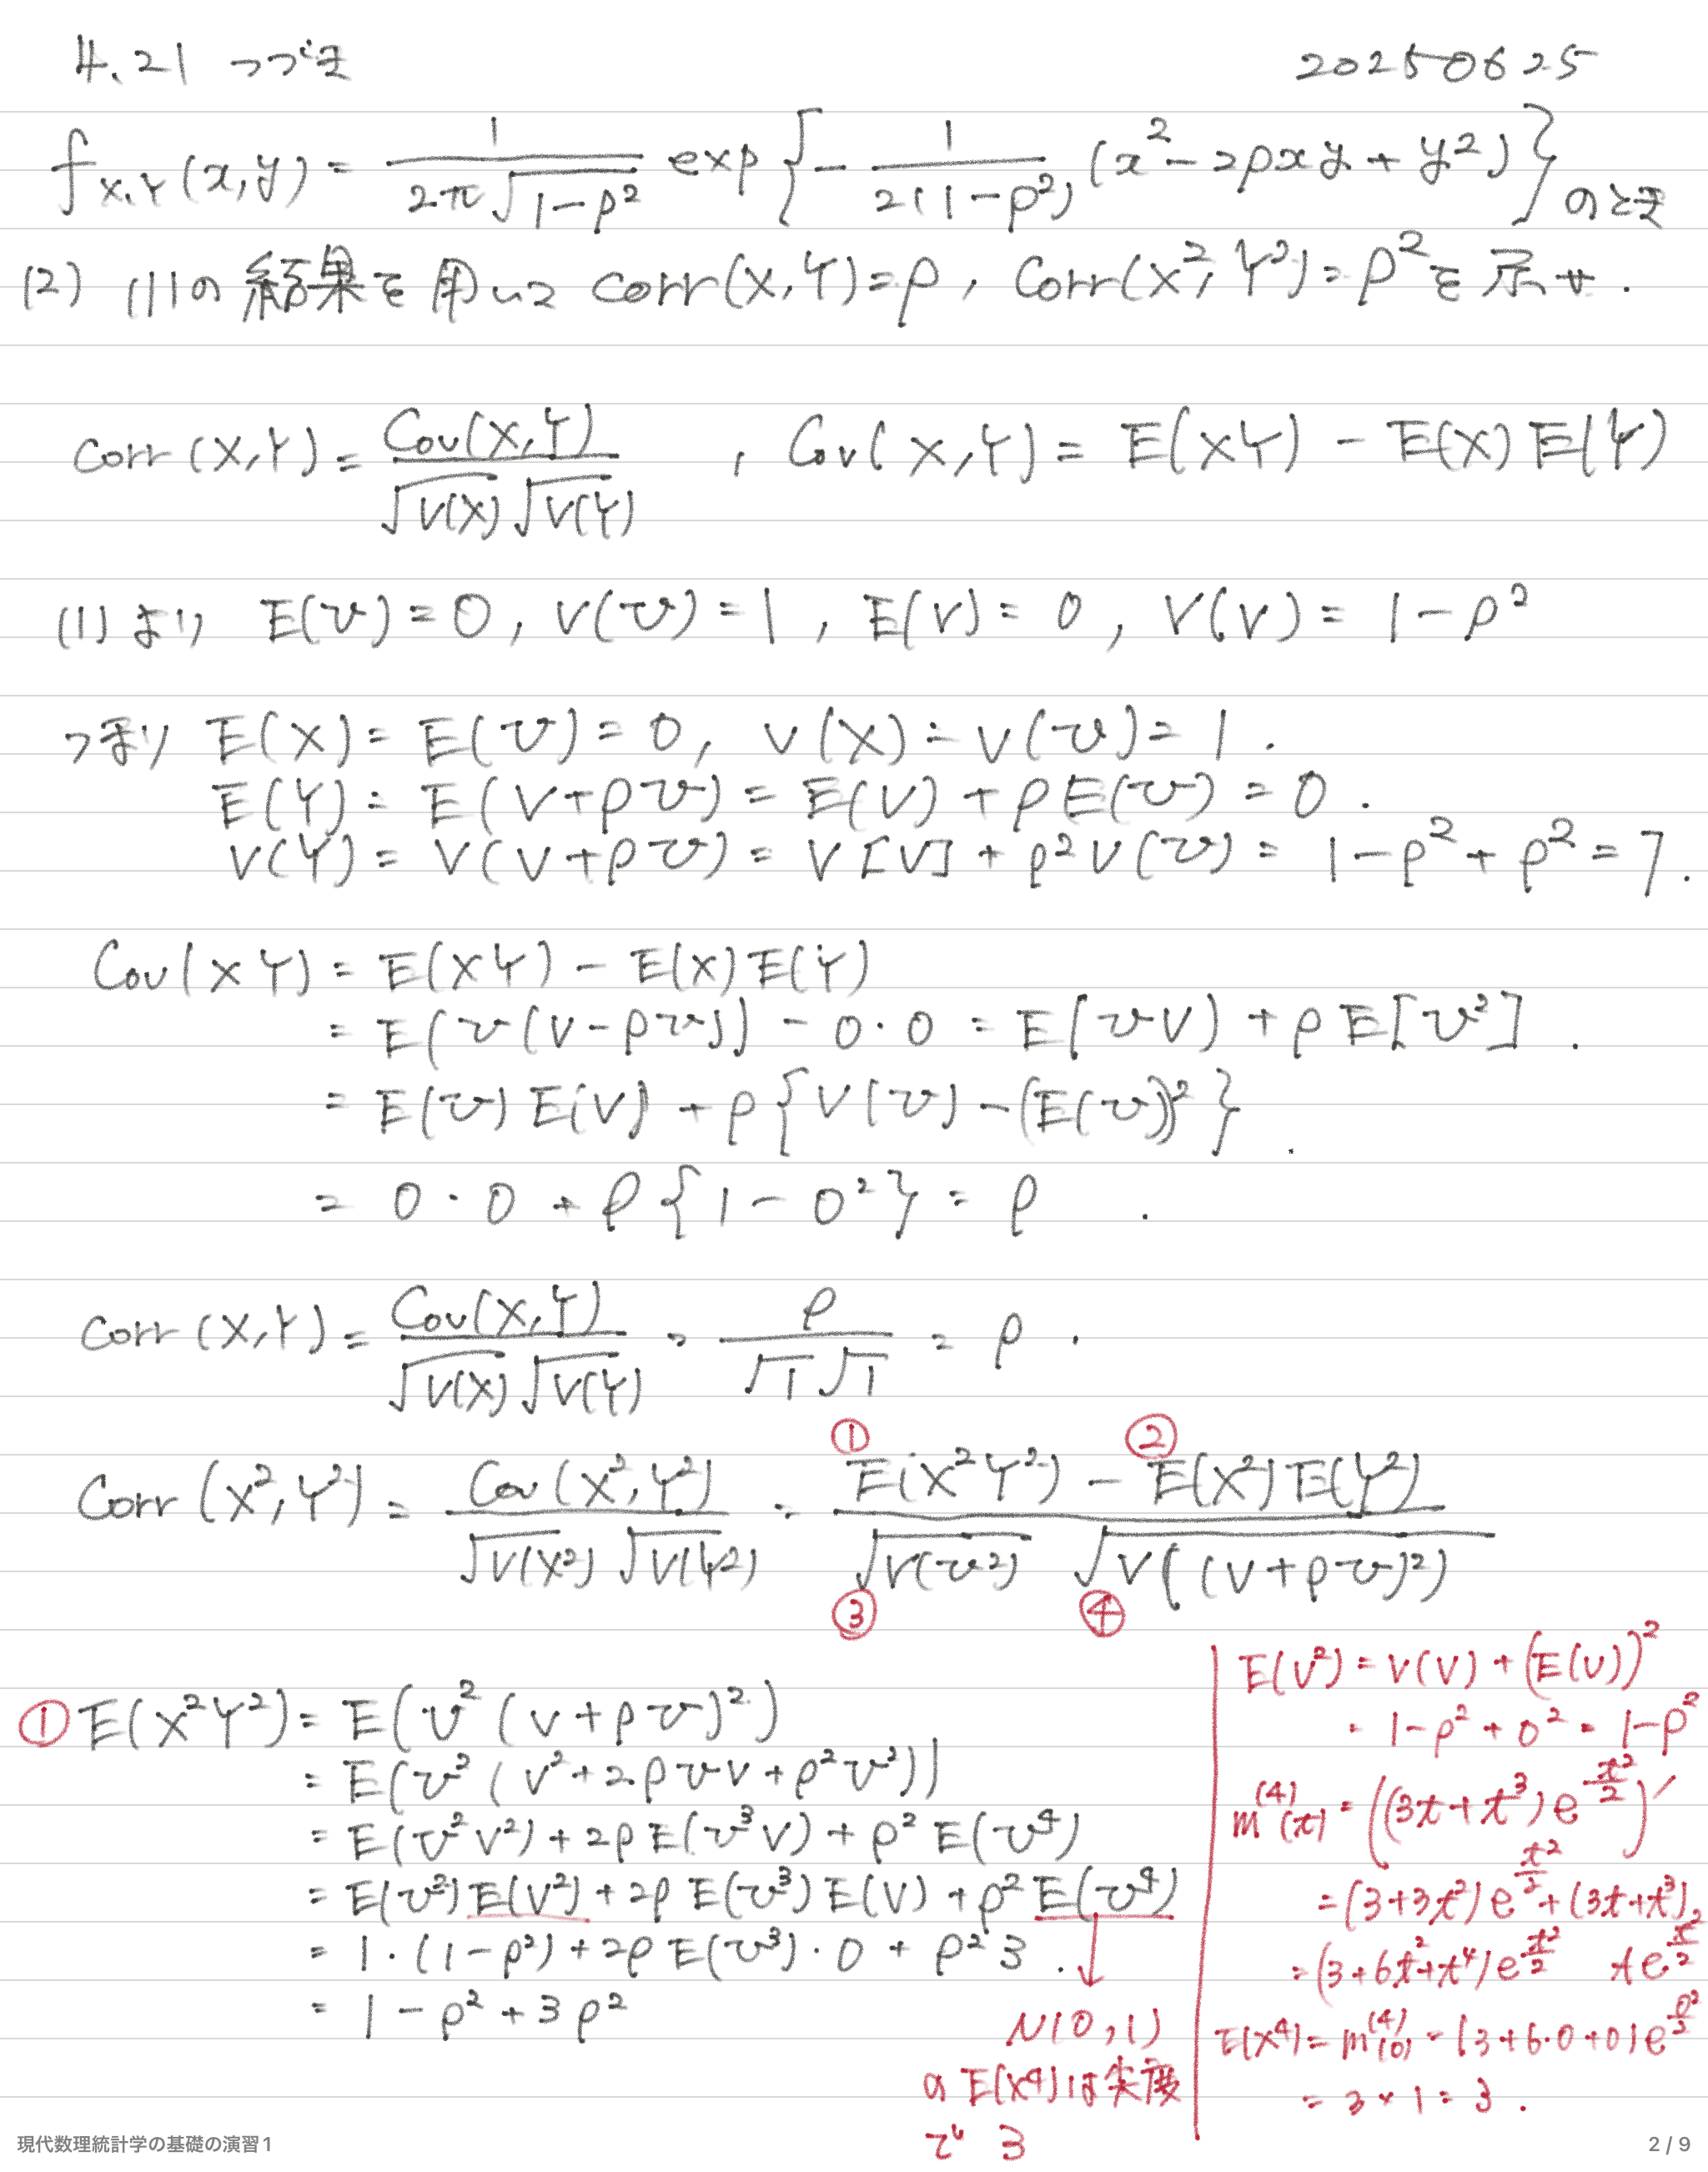 4.21 つづき 20250625
f_{X,Y}(x,y) = \frac{1}{2π\sqrt{1-ρ^2}} exp{ -\frac{1}{2(1-ρ^2)} (x^2 - 2ρxy + y^2) } のとき
(2) (1)の結果を用いて Corr(X,Y)=ρ, Corr(X^2,Y^2)=ρ^2 を示せ.
Corr(X,Y) = \frac{Cov(X,Y)}{\sqrt{V(X)}\sqrt{V(Y)}} , Cov(X,Y) = E(XY) - E(X)E(Y)
(1)より E(U)=0, V(U)=1, E(V)=0, V(V)=1-ρ^2
つまり E(X)=E(U)=0, V(X)=V(U)=1.
E(Y)=E(V+ρU)=E(V)+ρE(U)=0.
V(Y)=V(V+ρU)=V[V]+ρ^2V(U)=1-ρ^2+ρ^2=1.
Cov(XY)=E(XY)-E(X)E(Y)
=E(U(V-ρU))-0・0=E[UV)+ρE[U^2].
=E(U)E(V)+ρ{V(U)-(E(U))^2}.
=0・0+ρ{1-0^2}=ρ.
Corr(X,Y)=\frac{Cov(X,Y)}{\sqrt{V(X)}\sqrt{V(Y)}}=\frac{ρ}{\sqrt{1}\sqrt{1}}=ρ.
① ②
Corr(X^2,Y^2)=\frac{Cov(X^2,Y^2)}{\sqrt{V(X^2)}\sqrt{V(Y^2)}}=\frac{E(X^2Y^2)-E(X^2)E(Y^2)}{\sqrt{V(U^2)}\sqrt{V((V+ρU)^2)}}
③ ④
①E(X^2Y^2)=E(U^2(V+ρU)^2)
=E(U^2(V^2+2ρUV+ρ^2U^2))
=E(U^2V^2)+2ρE(U^3V)+ρ^2E(U^4)
=E(U^2)E(V^2)+2ρE(U^3)E(V)+ρ^2E(U^4)
=1・(1-ρ^2)+2ρE(U^3)・0+ρ^2 3.
=1-ρ^2+3ρ^2
↓
N(0,1)
の E(X^4)は尖度
で 3
E(V^2)=V(V)+(E(V))^2
=1-ρ^2+0^2=1-ρ^2
m^{(4)}(t)=((3t+t^3)e^{\frac{t^2}{2}})'
=(3+3t^2)e^{\frac{t^2}{2}}+(3t+t^3)
te^{\frac{t^2}{2}}
=(3+6t^2+t^4)e^{\frac{t^2}{2}}
E(X^4)=m^{(4)}(0)=(3+6・0+0)e^{\frac{0^2}{2}}
=3×1=3.
現代数理統計学の基礎の演習1
2 / 9